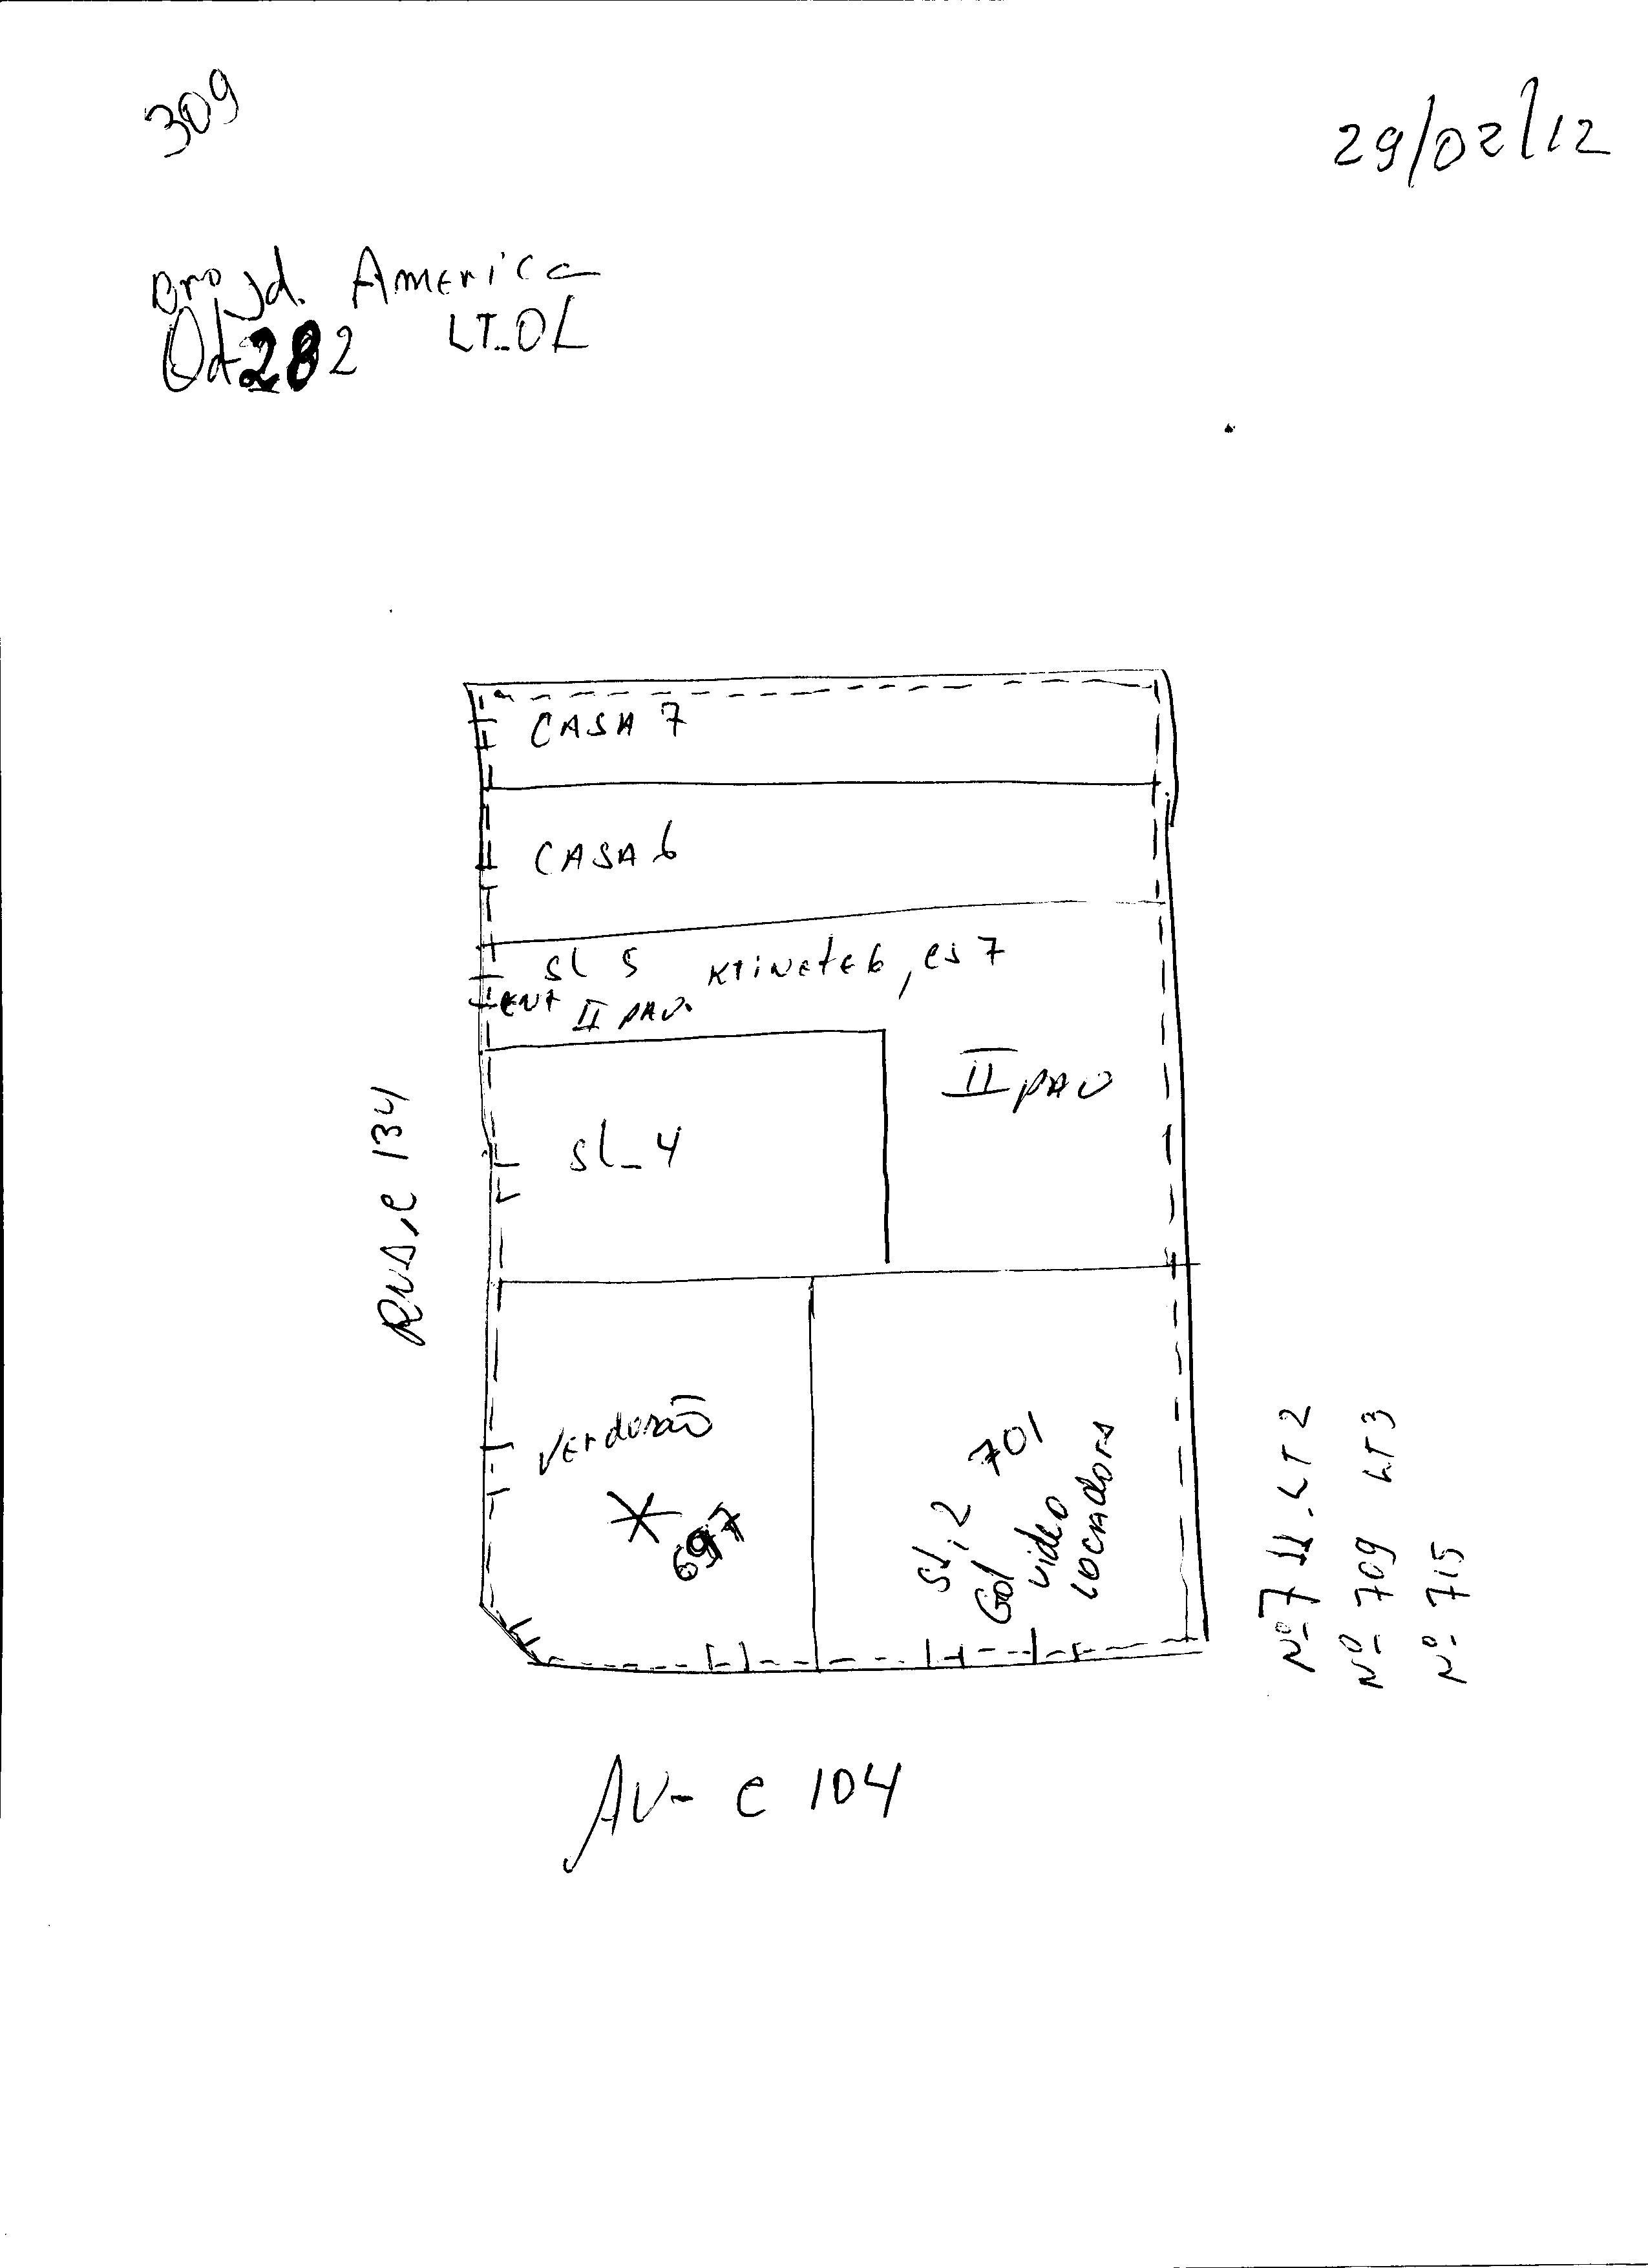 309
29/02/12
Bro Jd. America
Qd 282 LT_01
CASA 7
CASA 6
SL 5 Ktinete 6, es 7
ENT II PAV.
II PAV
SL_4
RUA, C 134
Verdurão
697
SL, 2 701
Gol
video
Locadora
Nº 7 11. LT 2
Nº 709 LT 3
Nº 715
AV- C 104